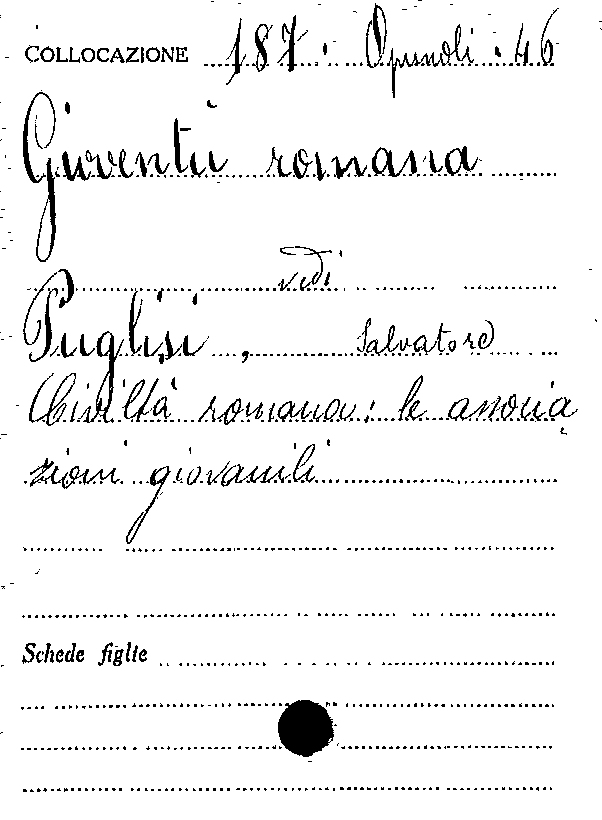 COLLOCAZIONE 187. Opuscoli. 46
Gioventù romana
vedi
Puglisi, Salvatore
Civiltà romana: le associa
zioni giovanili
Schede figlie